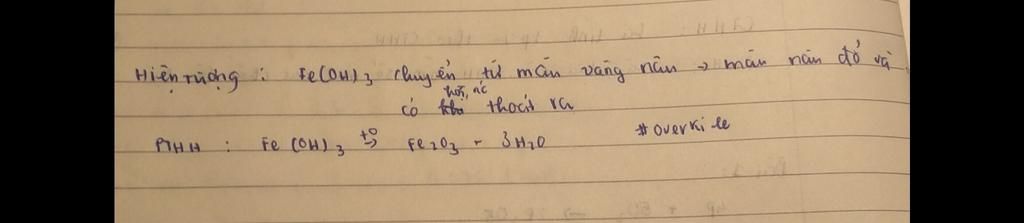 Hiện tượng : Fe(OH)3 chuyển từ màu vàng nâu → màu nâu đỏ và
có hơi nc thoát ra
PTHH : Fe(OH)3 t° → Fe2O3 + 3H2O #overkite